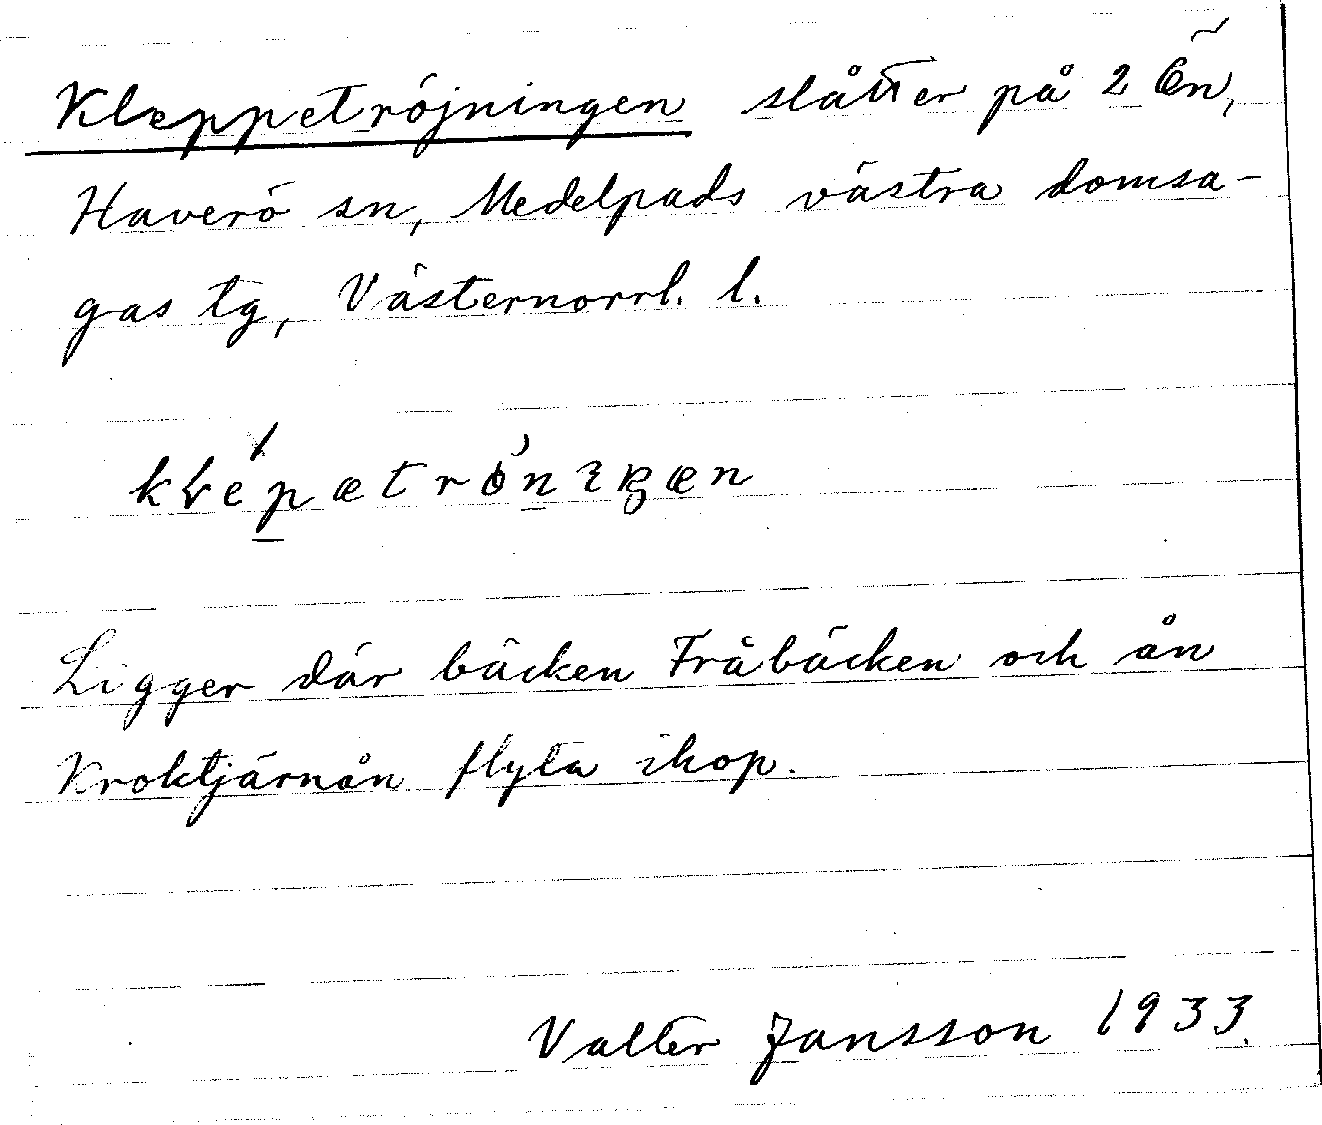 Kleppetröjningen slåtter på 2 Ön,
Haverö sn, Medelpads västra domsa-
gas tg, Västernorrl. l.
Ligger där bäcken Fråbäcken och ån
Kroktjärnån flyta ihop.
Valter Jansson 1933.